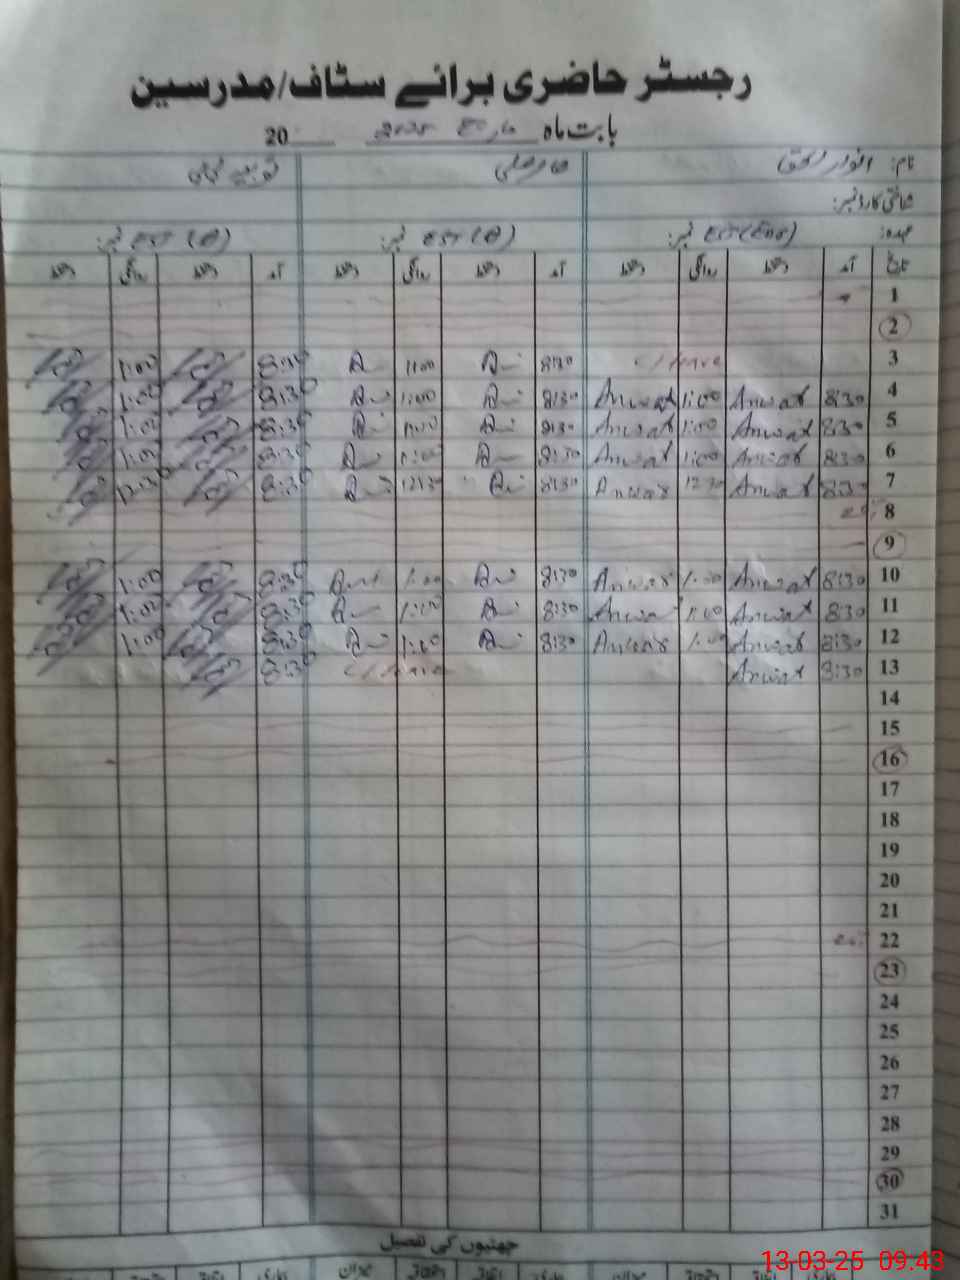 رجسٹر حاضری برائے سٹاف/مدرسین
بابت ماہ مارچ 2025 20
نام: انوار الحق
شناختی کارڈ نمبر:
عہدہ: نمبر: EST (B) نمبر: EST (B) نمبر:
تاریخ آمد دستخط روانگی دستخط آمد دستخط روانگی دستخط آمد دستخط روانگی دستخط
1
2
3 8:30 1:00 8:30 1:00
4 8:30 Anwar 1:00 Anwar 8:30 1:00 8:30 1:00
5 8:30 Anwar 1:00 Anwar 8:30 1:00 8:30 1:00
6 8:30 Anwar 1:00 Anwar 8:30 1:00 8:30 1:00
7 8:30 Anwar 12:30 Anwar 8:30 12:30 8:30 12:30
8
9
10 8:30 Anwar 1:00 Anwar 8:30 1:00 8:30 1:00
11 8:30 Anwar 1:00 Anwar 8:30 1:00 8:30 1:00
12 8:30 Anwar 1:00 Anwar 8:30 1:00 8:30 1:00
13 8:30 Anwar 8:30
14
15
16
17
18
19
20
21
22
23
24
25
26
27
28
29
30
31
چھٹیوں کی تفصیل
13-03-25 09:43